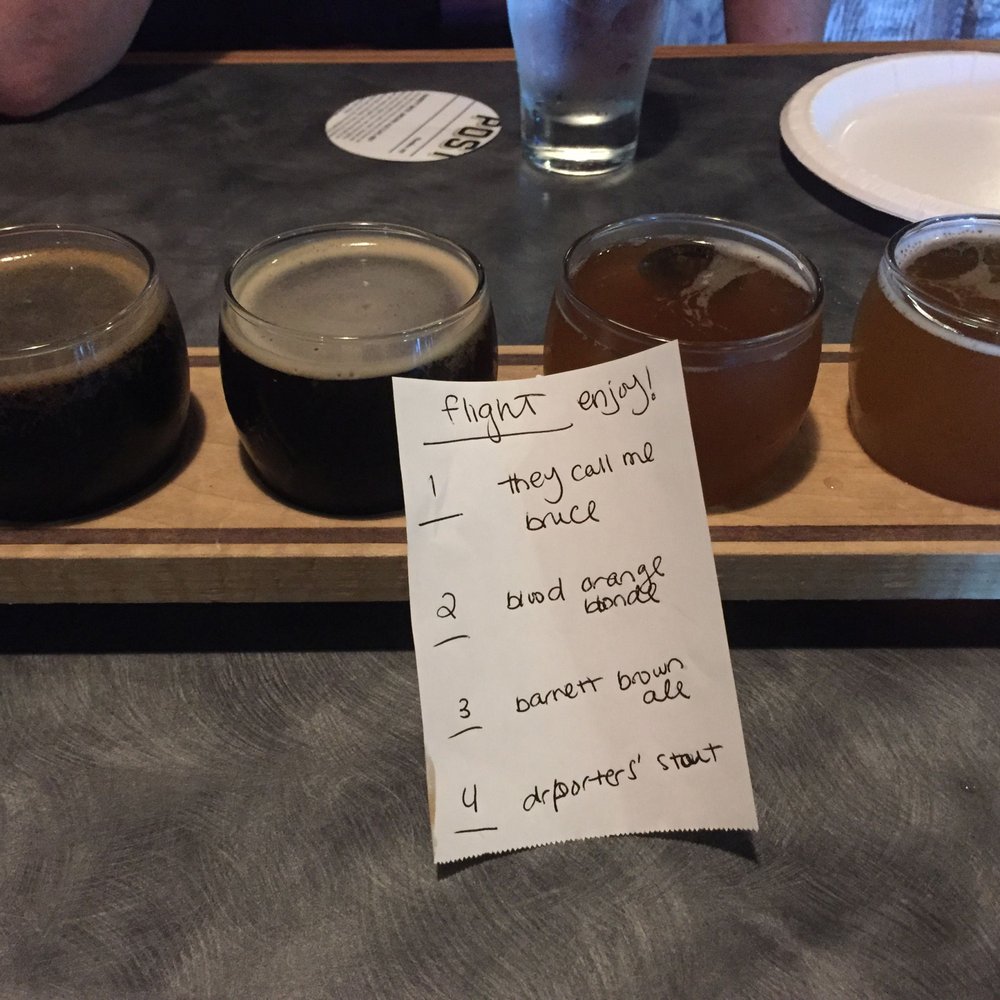 POST
flight enjoy!
1 they call me
bruce
2 blood orange
blonde
3 barnett brown
ale
4 drporters' stout